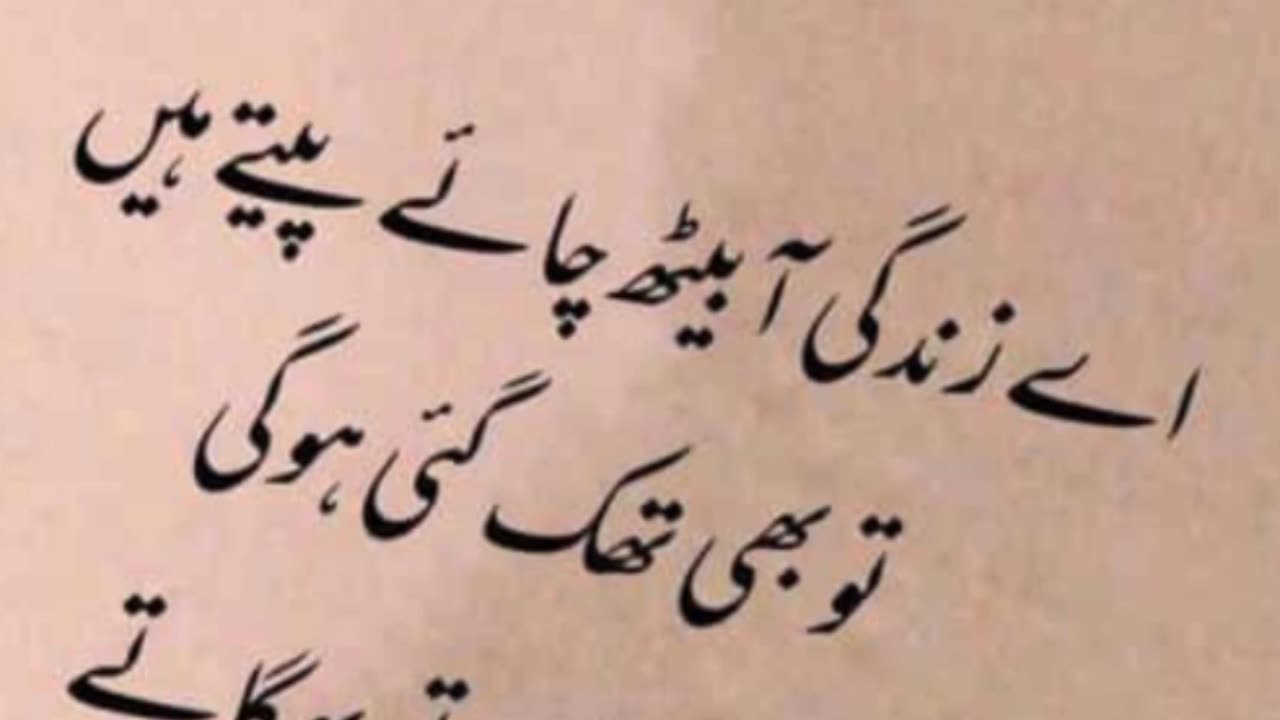 اے زندگی آ بیٹھ چائے پیتے ہیں
تو بھی تھک گئی ہوگی